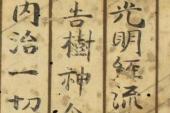 光明經流
告樹神
内治一切